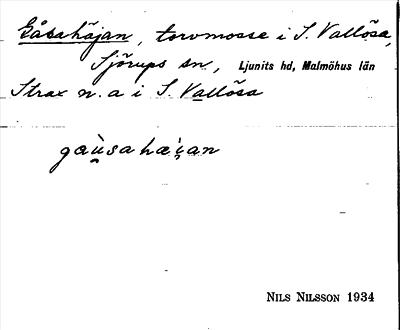 Gåsahäjan, torvmosse i S. Vallösa,
Sjörups sn, Ljunits hd, Malmöhus län
Strax n. a i S. Vallösa
gæ̀u̯sahæi̯an
NILS NILSSON 1934